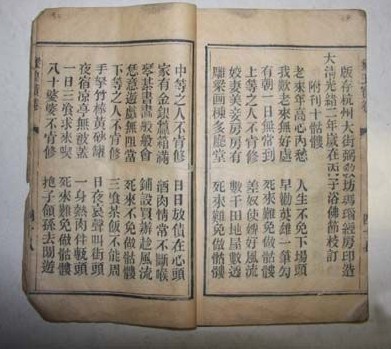 版存杭州大街弼教坊瑪瑙經房印造
大清光緒二年歲在丙子浴佛節校訂
附刊十骷髏
老來年高心內愁 人生不免下場頭
我歎老來無好處 早勸英雄一筆勾
有朝一日無常到 死來難免做骷髏
上等之人不肯修 差奴使婢好風流
姣妻美妾房房有 數千田地屋
雕梁画棟多廳堂 死來難免做骷髏
中等之人不肯修 日日放債在心頭
家有金銀箱滿 酒肉情常不斷喉
琴棊書畫般般會 鋪設買辦趁風流
恁意遊戲無阻當 死來不免做骷髏
下等之人不肯修 三飡茶飯不能周
手拏竹棒黃砂罐 日夜哀聲叫街頭
夜宿凉亭無被蓋 一身熱肉伴骷頭
一日三飡求來喫 死來難免做骷髏
八十婆婆不肯修 抱子領孫去閒遊